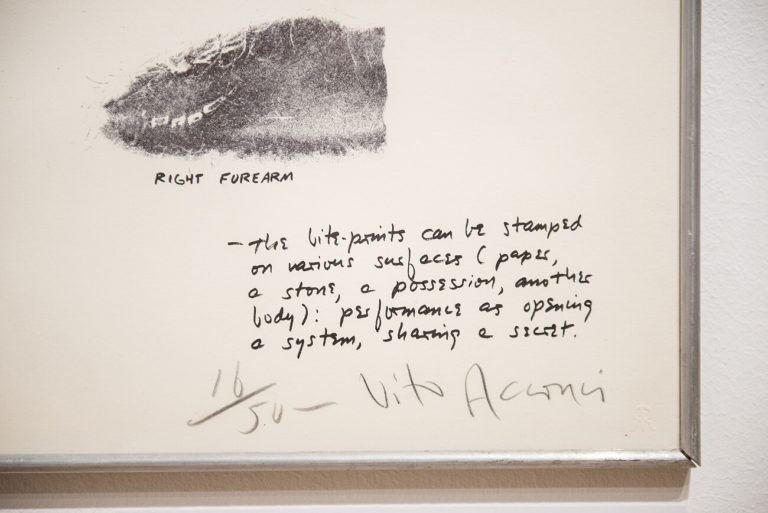 RIGHT FOREARM
- The bite-prints can be stamped
on various surfaces (paper,
a stone, a possession, another
body): performance as opening
a system, sharing a secret.
16/50 - Vito Acconci